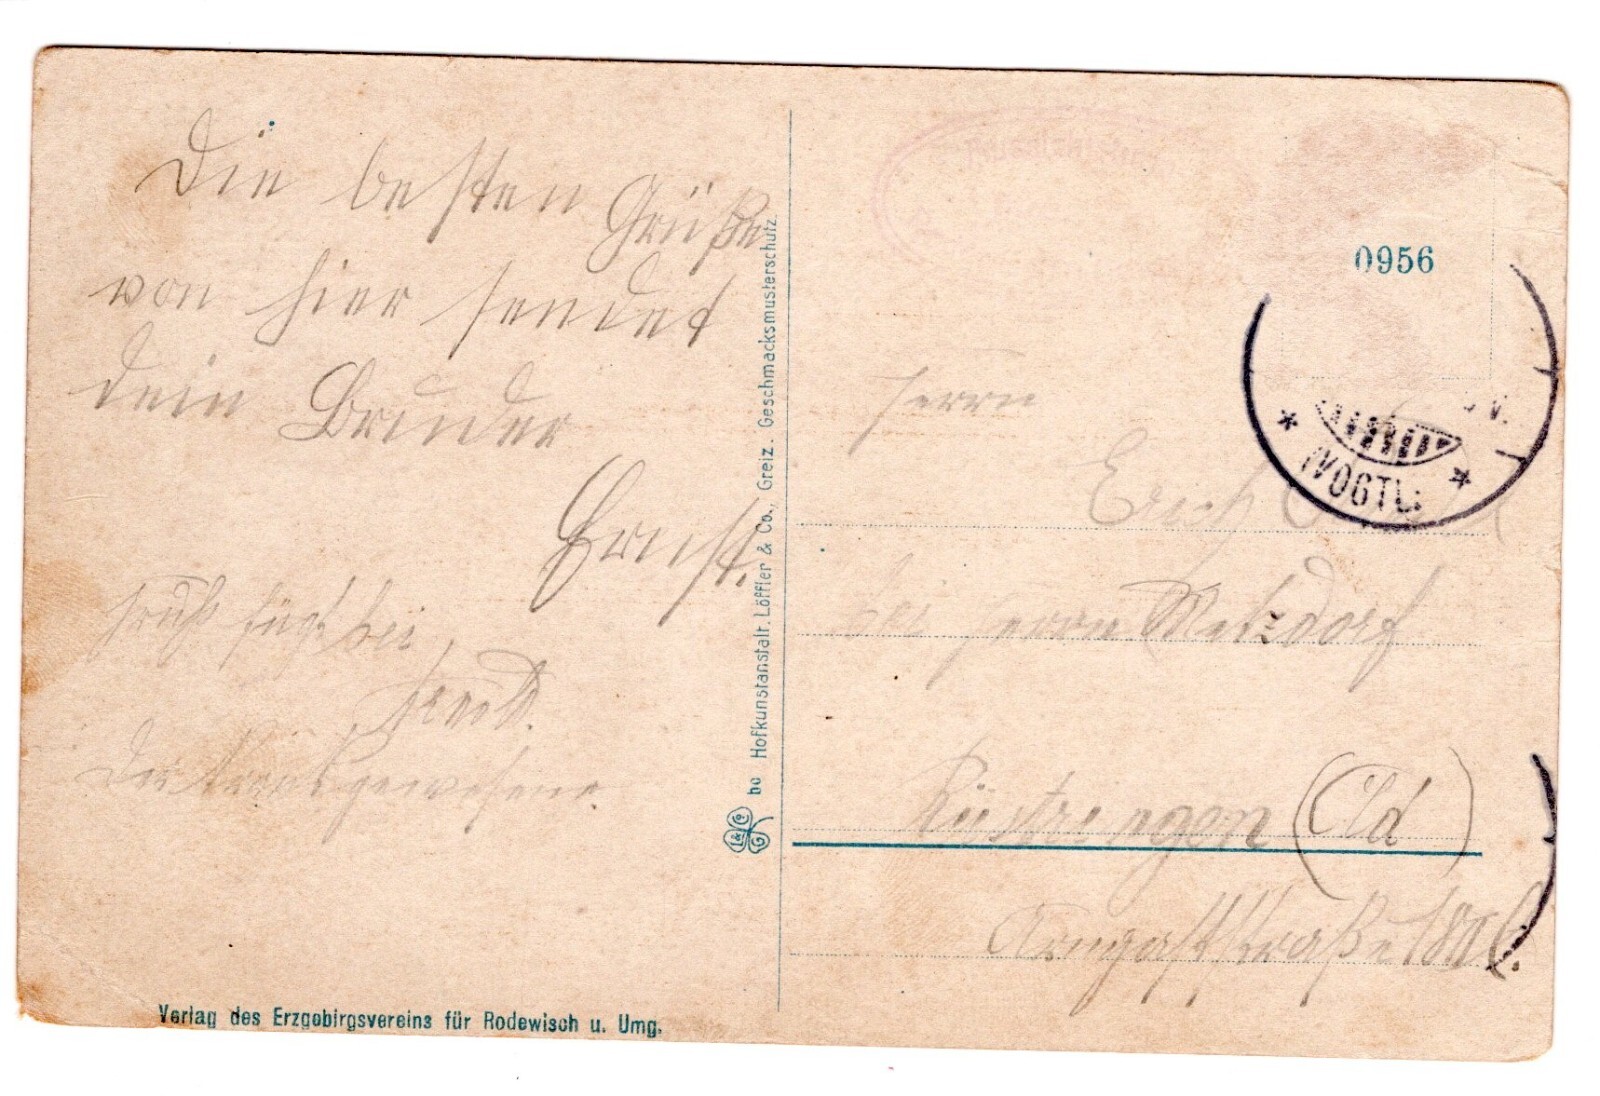 Die besten Grüße
von hier sendet
dein Bruder
Ernst.
Gruß fügt bei
Der
Verlag des Erzgebirgsvereins für Rodewisch u. Umg.
Hofkunstanstalt. Löffler & Co., Greiz. Geschmacksmusterschutz.
L & Co G
0956
(VOGTL.
Herrn
Erich
bei Herrn Metzdorf
Rüstringen (Old)